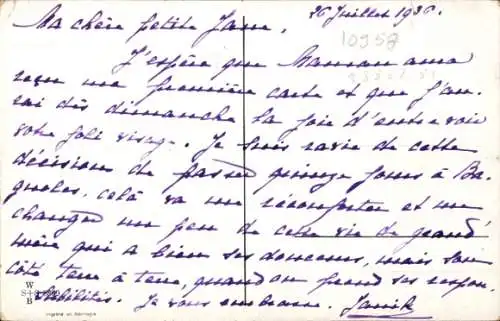 26 Juillet 1936.
Ma chère petite Jane.
10957
J'espère que Maman aura
reçu ma première carte et que j'au-
rai dès dimanche la joie d'entrevoir
votre joli visage. Je suis ravie de cette
décision de passer quinze jours à Ba-
gnoles, celà va me réconforter et me
changer un peu de cette vie de grand'
mère qui a bien ses douceurs, mais son
côté terre à terre, quand on prend ses respon-
sabilités. Je vous embrasse.
W
B